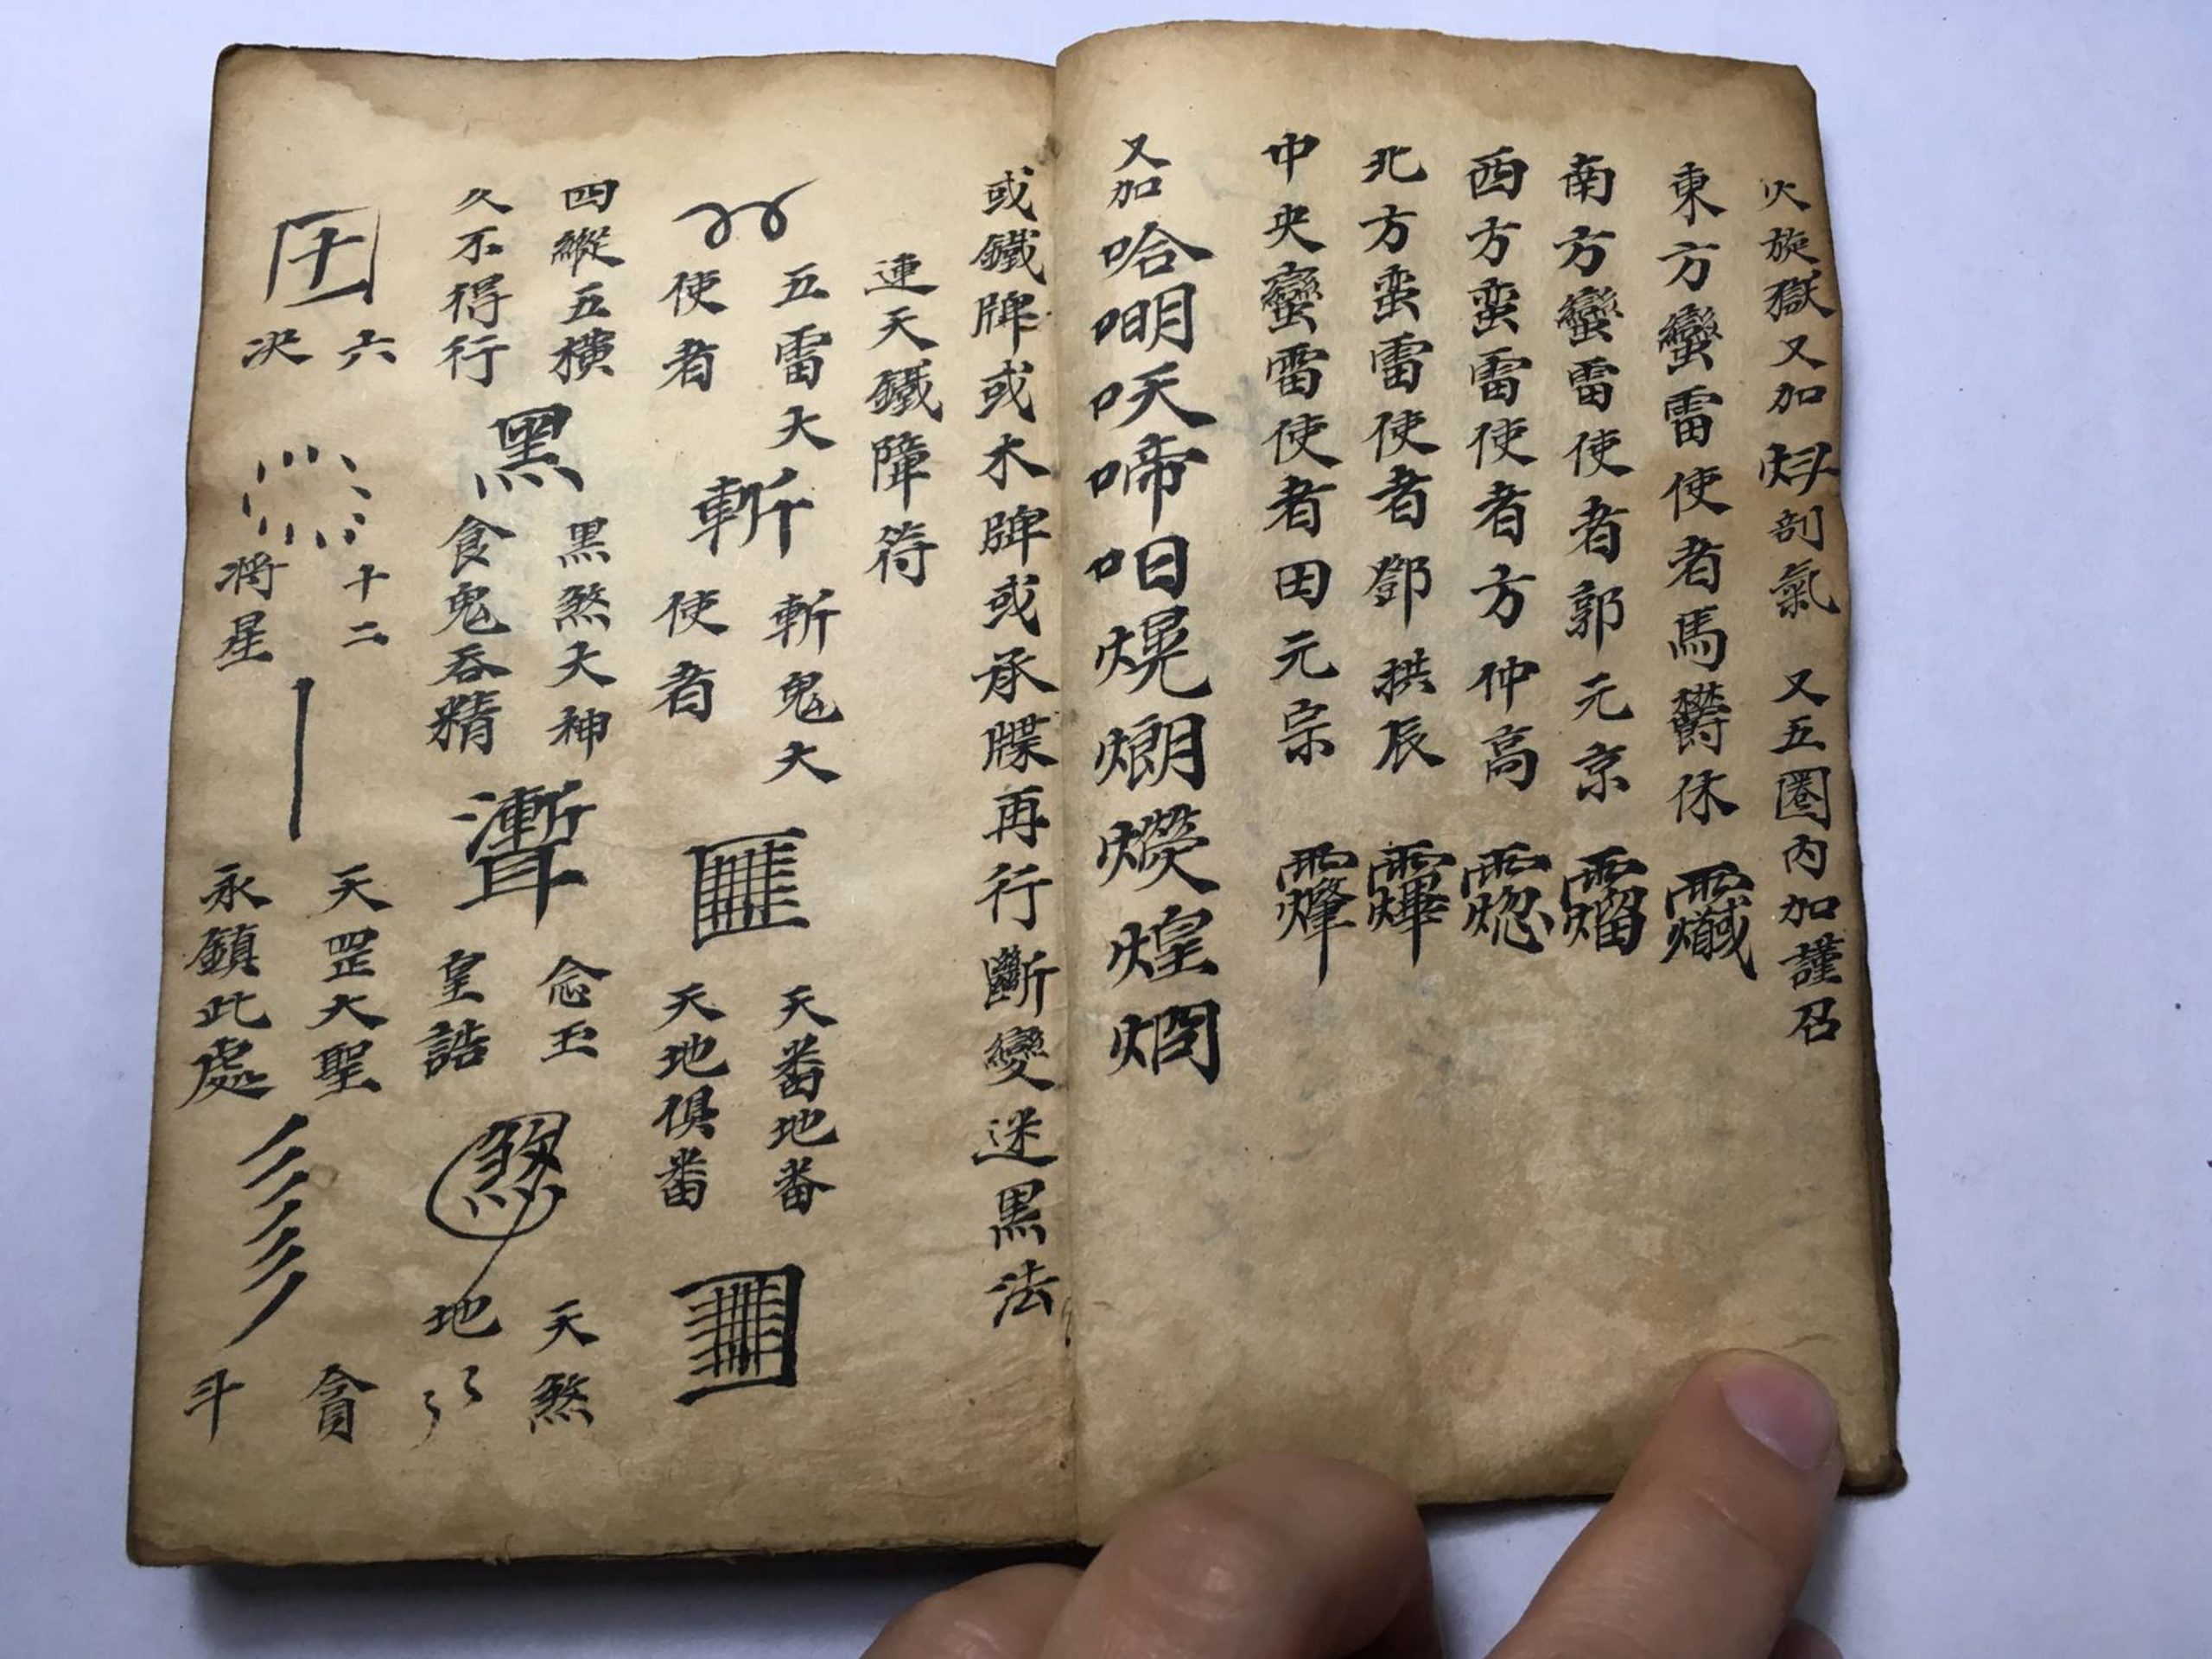 火旋獄又加 剖氣 又五圈內加謹召
東方蠻雷使者馬鬱休
南方蠻雷使者郭元京
西方蛮雷使者方仲高
北方蛮雷使者鄧拱辰
中央蠻雷使者田元宗
又加哈㗑㕭啼呬熀烺煐煌烱
或鐵牌或木牌或承牒再行斷變迷黑法
連天鐵障符
五雷大
使者
斬
斬鬼大
使者
天番地番
天地俱番
四縱五橫
久不得行
黑
黑煞大神
食鬼吞精
念玉
皇誥
煞
天煞
地
六
决
十二
將星
天罡大聖
永鎮此處
貪
斗